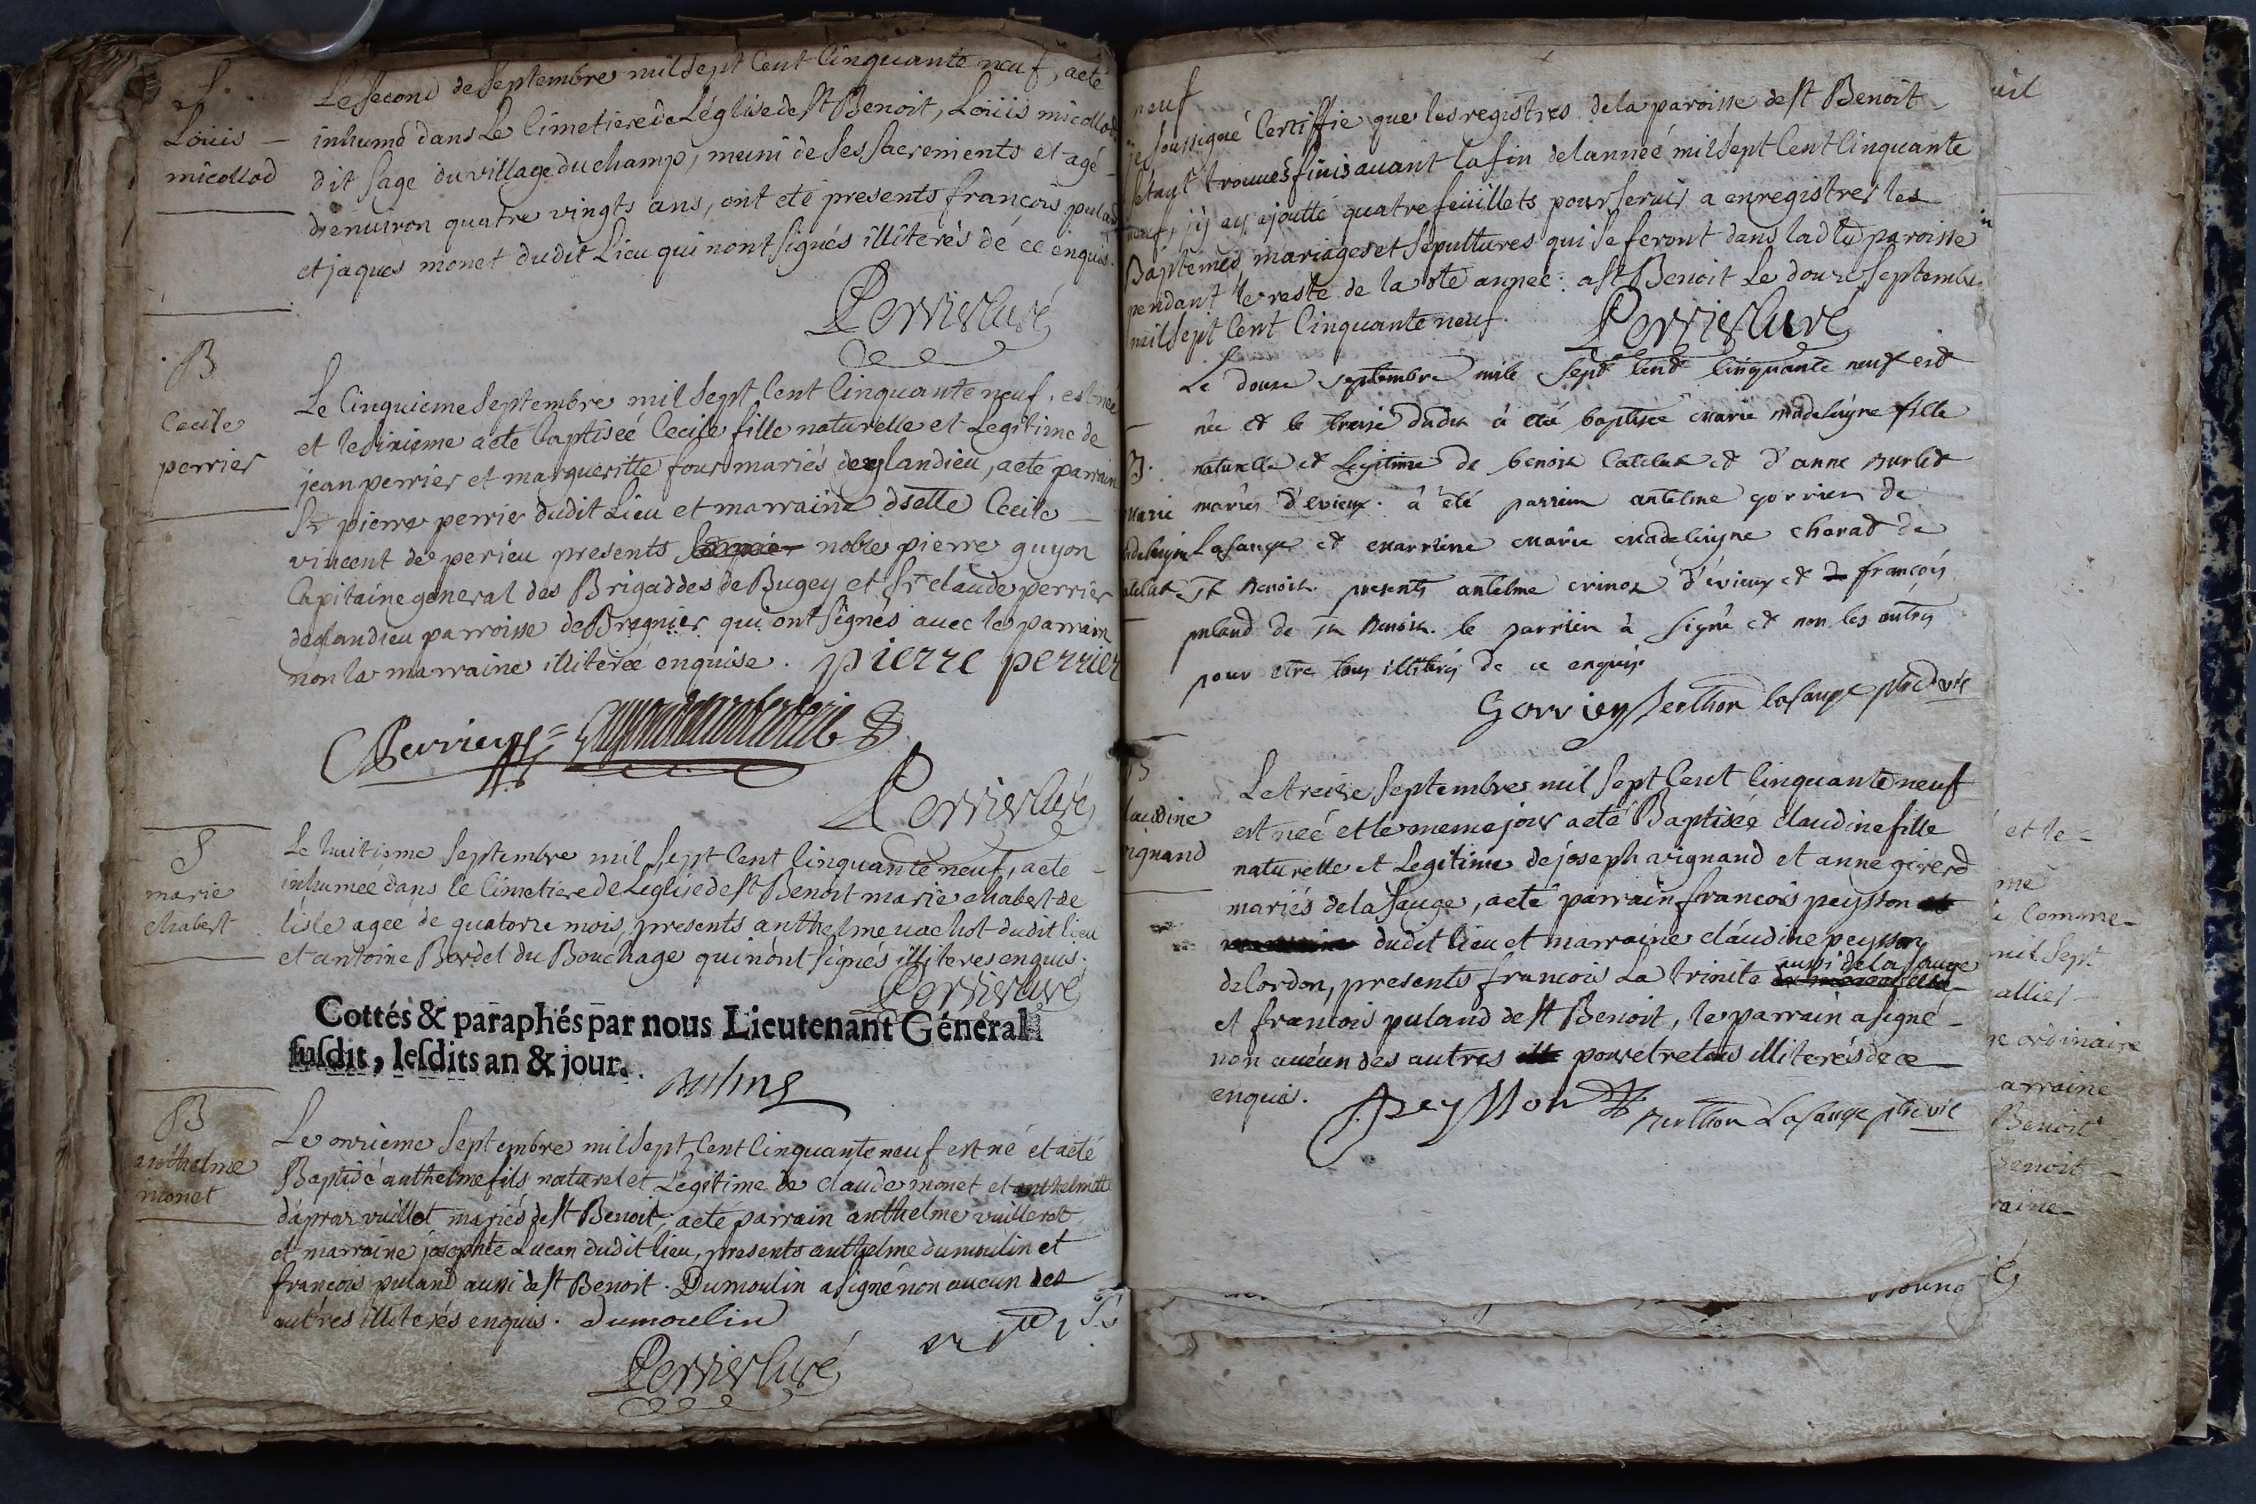 S.
Loüis
micollod
Le second de septembre mil sept cent cinquante neuf, a eté
inhumé dans Le Cimetiere de Léglise de st Benoit, Loüis micollod
dit sage du village du champ, muni de ses sacrements et agé
d'environ quatre vingts ans, ont eté presents françois puland
et jaques monet dudit Lieu qui n'ont signés illiterés de ce enquis.
Perrier curé
B
Cecile
perrier
Le Cinquieme septembre mil sept cent cinquante neuf, est née
et le sixieme a eté baptiseé Cecile fille naturelle et Legitime de
jean perrier et margueritte four mariés de glandieu, a eté parrain
Sr pierre perrier dudit Lieu et marraine dselle Cecile
vincent de perieu presents noble pierre guyon
Capitaine general des Brigaddes de Bugey et sr claude perrier
de glandieu parroisse de Bregnier qui ont signés avec le parrain
non la marraine illitereé enquise. pierre perrier
CPerrier
Perrier curé
S
marie
chabert
Le huitieme septembre mil sept cent cinquante neuf, a ete
inhumeé dans le Cimetiere de Leglise de st Benoit marie chabert de
lisle agee de quatorze mois, presents anthelme vachot dudit lieu
et antoine Bordet du Bouchage qui n'ont signés illiteres enquis.
Perrier curé
Cottés & paraphés par nous Lieutenant Géneral
susdit, lesdits an & jour.
B
anthelme
monet
Le onzieme septembre mil sept cent cinquante neuf est né et a eté
Baptisé anthelme fils naturel et Legitime de claude monet et anthelmette
dapraz vuillot mariés de st Benoit, a eté parrain anthelme vuillerot
et marraine josephte Lucan dudit lieu, presents anthelme dumoulin et
françois puland aussi de st Benoit. Dumoulin a signé non aucun des
autres illiterés enquis. Dumoulin
Perrier curé
neuf
je soussigné Certiffie que les registres de la paroisse de st Benoit
s'etant trouvés finis avant la fin de lanneé mil sept Cent Cinquante
neuf, j'y ay ajoutté quatre feüillets pour servir a enregistrer les
Baptemes, mariages et sepultures qui se feront dans lad. paroisse
pendant le reste de la dte anneé: a st Benoit Le douze septembre
mil sept Cent Cinquante neuf. Perrier Curé
B.
Marie
madeleigne
catelat
Le douze septembre mile sept cent cinquante neuf est
née et le treize dudit à eté baptisée marie madeleigne fille
naturelle et Legitime de benoit catelat et d'anne burlet
mariés d'evieux. à été parrien antelme gorrien de
Lasauge et marriene marie madeleigne charat de
St Benoit. presents antelme crinot d'evieux et françois
puland de St Benoit. le parrien à signé et non les autres
pour etre tous illiterés de ce enquis
Gorrien Berthon Lasauge ptre vic
B
claudine
vignand
Le treize septembre mil sept Cent Cinquante neuf
est neé et le meme jour a eté Baptiseé claudine fille
naturelle et Legitime de joseph vignand et anne girerd
mariés de la sauge, a eté parrain francois peysson
dudit lieu et marraine claudine peysson
de lordon, presents francois La trinite aussi de la sauge
et francois puland de st Benoit, le parrain a signé
non aucun des autres pour etre tous illiterés de ce
enquis. Peysson
Berthon Lasauge ptre vic
et le
me
Comme
mil sept
allier
ordinaire
arraine
Benoit
Benoit
raine